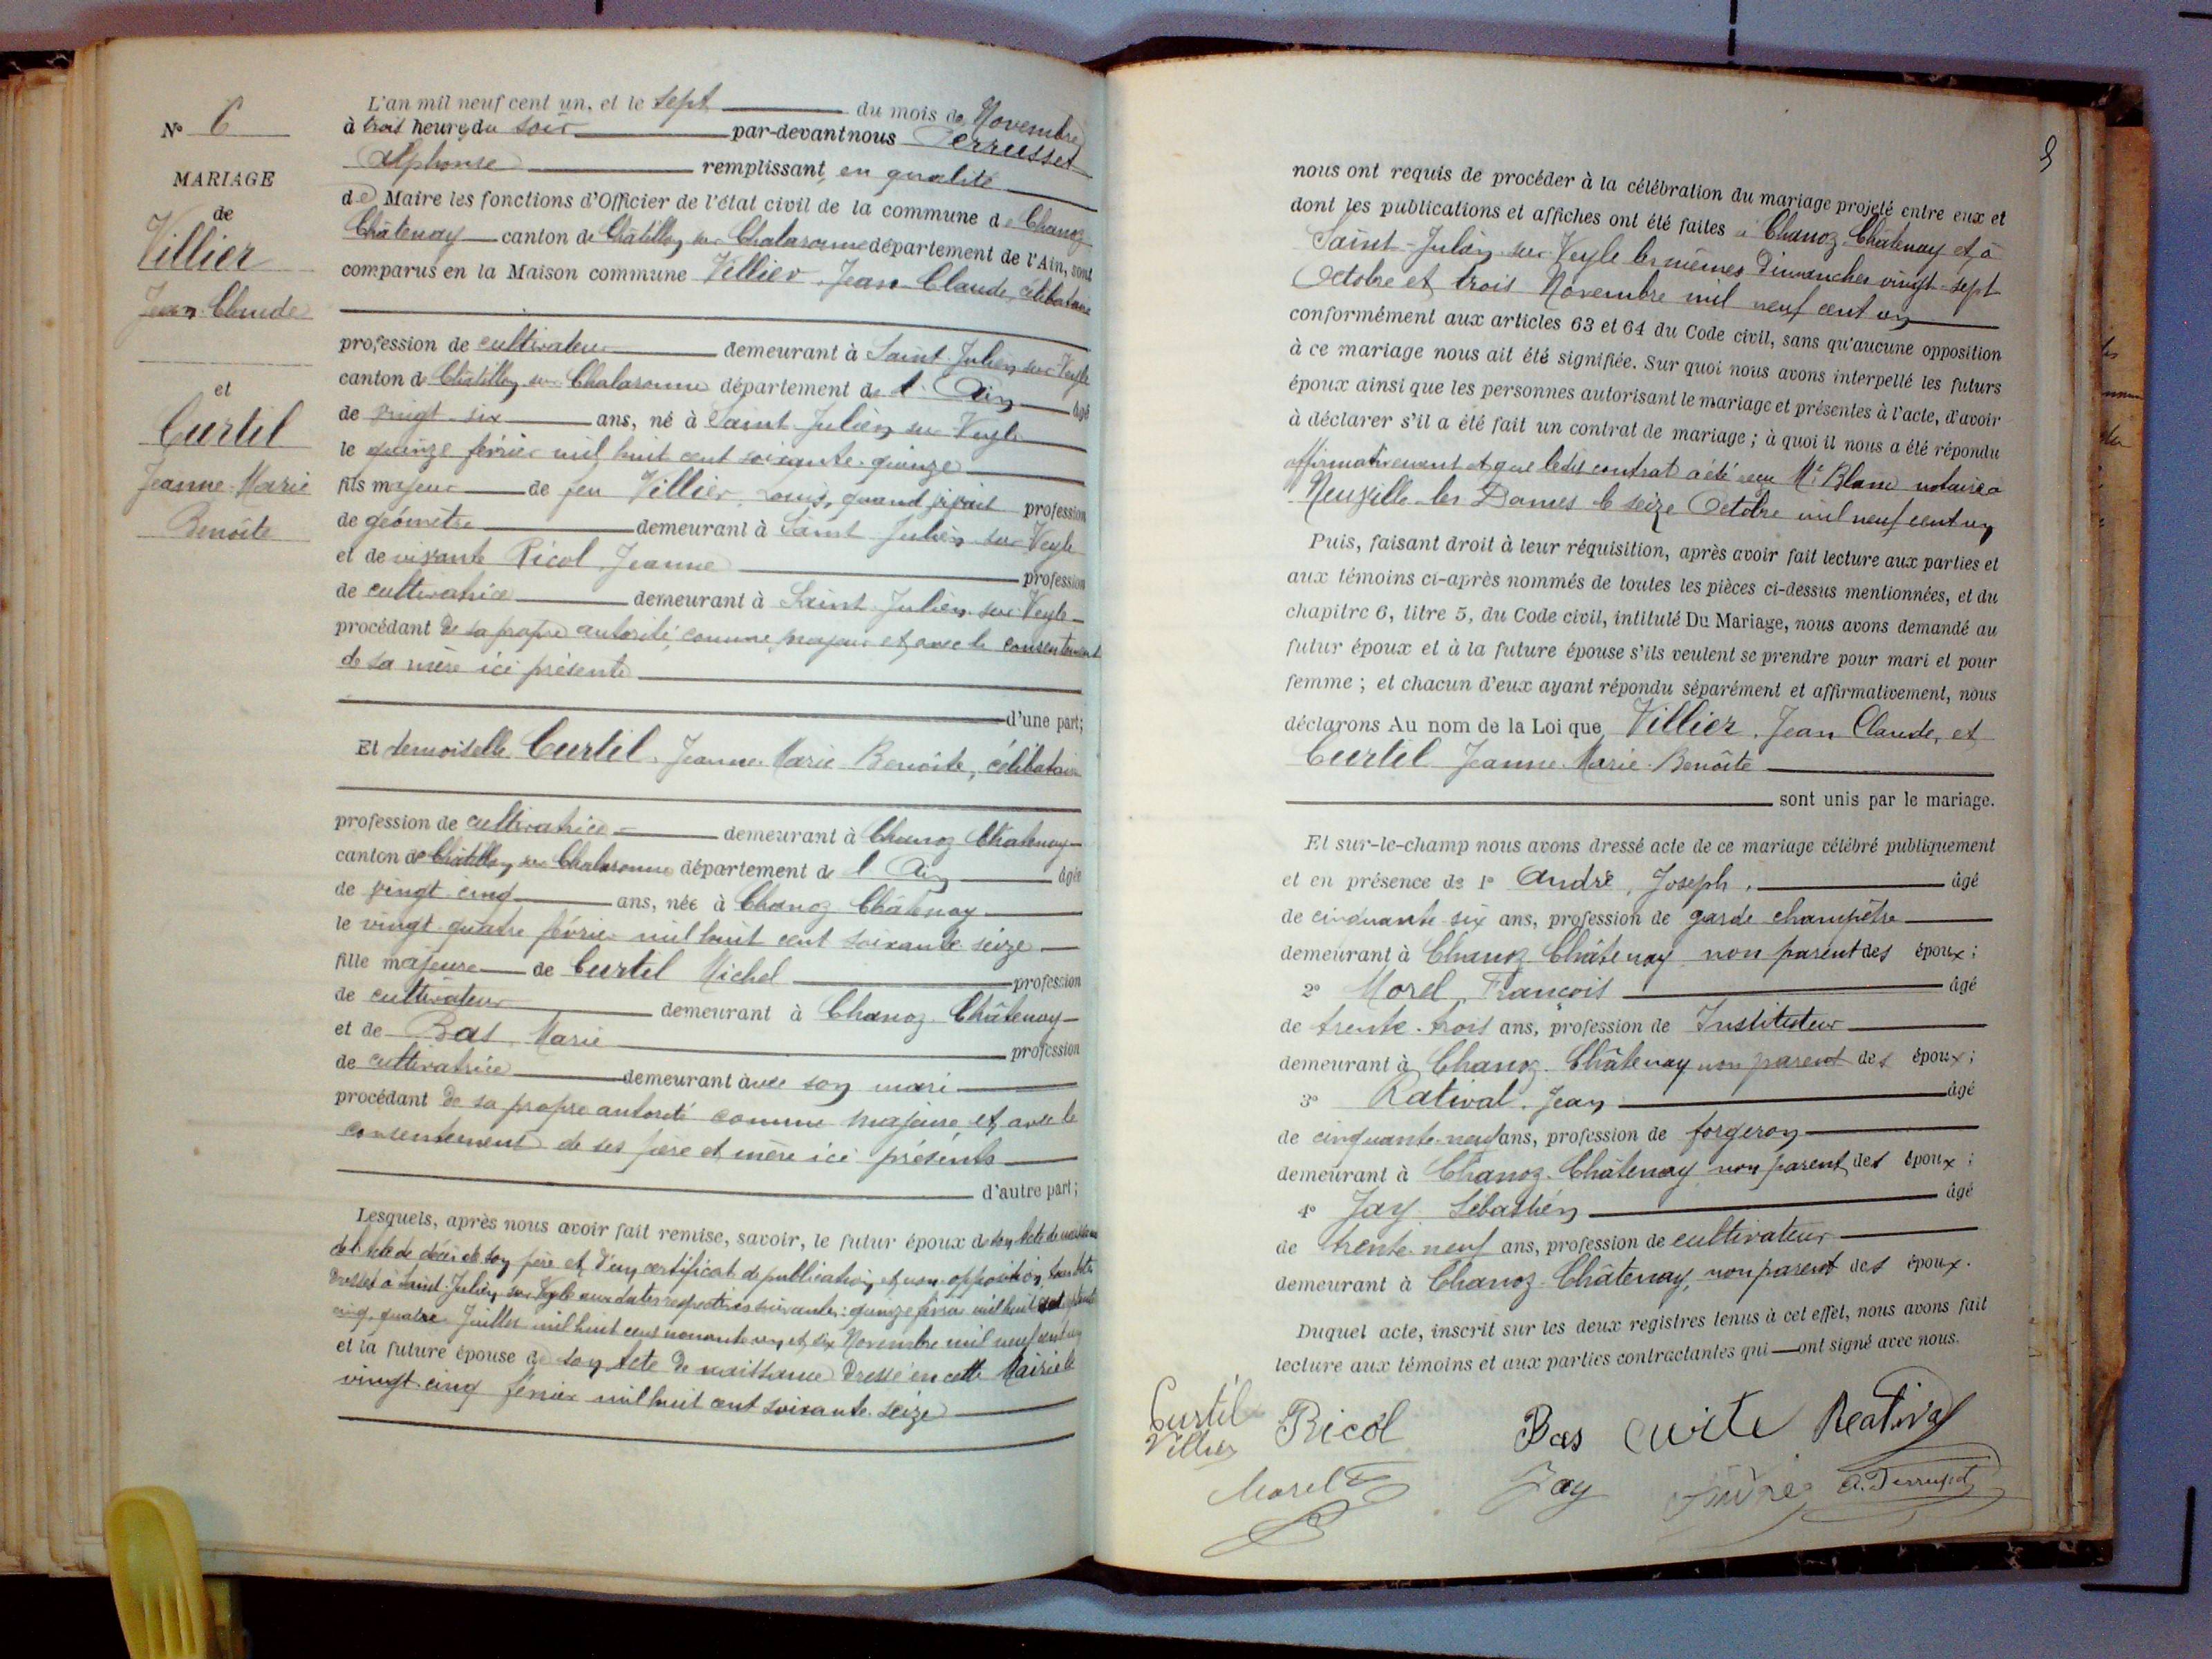 N° 6
MARIAGE
de
Villier
Jean-Claude
et
Curtil
Jeanne-Marie
Benoîte
L'an mil neuf cent un, et le sept du mois de Novembre
à trois heures du soir par-devant nous Perrusset
Alphonse remplissant en qualité
de Maire les fonctions d'Officier de l'état civil de la commune de Chanoz
Châtenay canton de Châtillon sur Chalaronne département de l'Ain, sont
comparus en la Maison commune Villier, Jean Claude, célibataire
profession de cultivateur demeurant à Saint-Julien sur Veyle
canton de Châtillon sur Chalaronne département de l'Ain âgé
de vingt-six ans, né à Saint-Julien sur Veyle
le quinze février mil huit cent soixante-quinze
fils majeur de feu Villier, Louis, quand vivait profession
de géomètre demeurant à Saint Julien sur Veyle
et de vivante Ricol, Jeanne profession
de cultivatrice demeurant à Saint-Julien sur Veyle
procédant de sa propre autorité comme majeur et avec le consentement
de sa mère ici présente
d'une part;
Et demoiselle Curtil, Jeanne-Marie-Benoîte, célibataire
profession de cultivatrice demeurant à Chanoz Châtenay
canton de Châtillon sur Chalaronne département de l'Ain âgée
de vingt cinq ans, née à Chanoz Châtenay
le vingt quatre février mil huit cent soixante seize
fille majeure de Curtil Michel profession
de cultivateur demeurant à Chanoz-Châtenay
et de Bas, Marie profession
de cultivatrice demeurant avec son mari
procédant de sa propre autorité comme majeure et avec le
consentement de ses père et mère ici présents
d'autre part;
Lesquels, après nous avoir fait remise, savoir, le futur époux de son acte de naissance
de l'acte de décès de son père et d'un certificat de publication et non opposition, tous
dressés à Saint-Julien sur Veyle aux dates respectives suivantes: quinze février mil huit cent soixante
cinq, quatre Juillet mil huit cent nonante un et six Novembre mil neuf cent un
et la future épouse de son acte de naissance dressé en cette Mairie le
vingt-cinq février mil huit cent soixante-seize
9
nous ont requis de procéder à la célébration du mariage projeté entre eux et
dont les publications et affiches ont été faites à Chanoz-Châtenay et à
Saint-Julien sur Veyle les mêmes dimanches vingt-sept
Octobre et trois Novembre mil neuf cent un
conformément aux articles 63 et 64 du Code civil, sans qu'aucune opposition
à ce mariage nous ait été signifiée. Sur quoi nous avons interpellé les futurs
époux ainsi que les personnes autorisant le mariage et présentes à l'acte, d'avoir
à déclarer s'il a été fait un contrat de mariage; à quoi il nous a été répondu
affirmativement et que ledit contrat a été reçu Me Blanc notaire à
Neuville-les-Dames le seize Octobre mil neuf cent un
Puis, faisant droit à leur réquisition, après avoir fait lecture aux parties et
aux témoins ci-après nommés de toutes les pièces ci-dessus mentionnées, et du
chapitre 6, titre 5, du Code civil, intitulé Du Mariage, nous avons demandé au
futur époux et à la future épouse s'ils veulent se prendre pour mari et pour
femme; et chacun d'eux ayant répondu séparément et affirmativement, nous
déclarons Au nom de la Loi que Villier, Jean Claude, et
Curtil Jeanne-Marie-Benoîte
sont unis par le mariage.
Et sur-le-champ nous avons dressé acte de ce mariage célébré publiquement
et en présence de 1° André, Joseph, âgé
de cinquante-six ans, profession de garde champêtre
demeurant à Chanoz Châtenay non parent des époux;
2° Morel, François âgé
de trente-trois ans, profession de Instituteur
demeurant à Chanoz-Châtenay non parent des époux;
3° Ratival, Jean âgé
de cinquante-neuf ans, profession de forgeron
demeurant à Chanoz-Châtenay non parent des époux;
4° Jay Sébastien âgé
de trente-neuf ans, profession de cultivateur
demeurant à Chanoz-Châtenay, non parent des époux.
Duquel acte, inscrit sur les deux registres tenus à cet effet, nous avons fait
lecture aux témoins et aux parties contractantes qui ont signé avec nous.
Curtil Ricol Bas Reatival
Villier
Morel F Jay André A. Perrusset